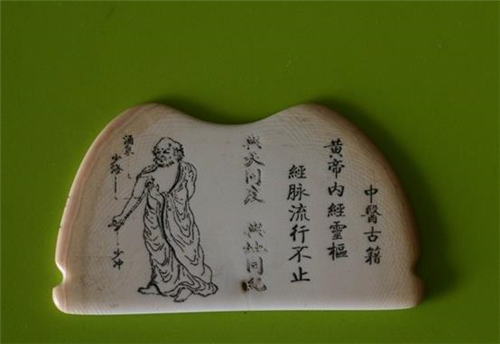 中醫古籍
黄帝内經靈樞
經脉流行不止
與天同度 與地同紀
少海
少冲